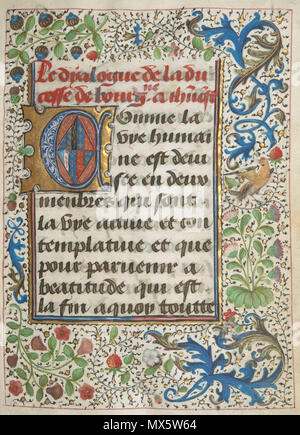 Le dyalogue de la du
cesse de bourgne a
Comme la
vye humai
ne est deui
see en deux
membres qui sont
la vye actiue et con
templatiue et que
pour paruenir a
beatitude qui est
la fin a quoy toutte
alamy - MX5W64